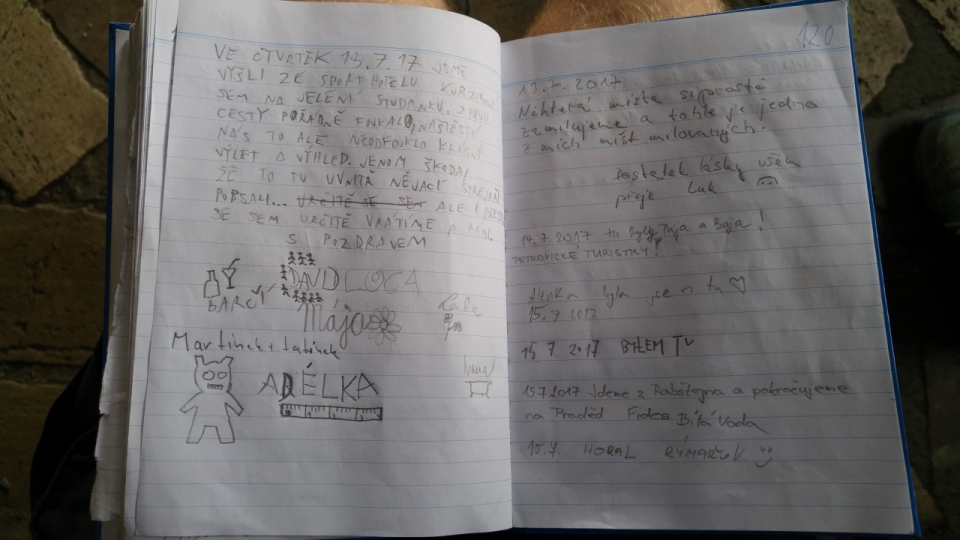 VE ČTVRTEK 13.7.17 JSME
VYŠLI ZE SPORTHOTELU KURZOVNÍ
SEM NA JELENÍ STUDÁNKU.
CESTY POŘÁDNĚ FOUKALO, NAŠTĚSTÍ
NÁS TO ALE NEODFOUKLO KRÁSNÝ
VÝLET A VÝHLED. JENOM ŠKODA,
ŽE TO TU UVNITŘ NĚJACÍ
POPSALI... URČITĚ SE SEM ALE I PŘESTO
SE SEM URČITĚ VRÁTÍME
S POZDRAVEM
DAVID LOCA
BARČA
Mája
Martinek + tatínek
ADÉLKA
120
13.7.2017
Některá místa suprostě
zamilujeme a tohle je jedno
z mých míst milovaných.
Dostatek lásky všem
přeje Luk
14.7.2017 tu byly Pája a Bája!
PETROVICKÉ TURISTKY!
byla jsem tu
15.7 2017
15 7 2017 BYLEM TU
15.7.2017 Jdeme z Rabštejna a pokračujeme
na Praděd Bílá Voda
15.7. HORAL RÝMAŘOV